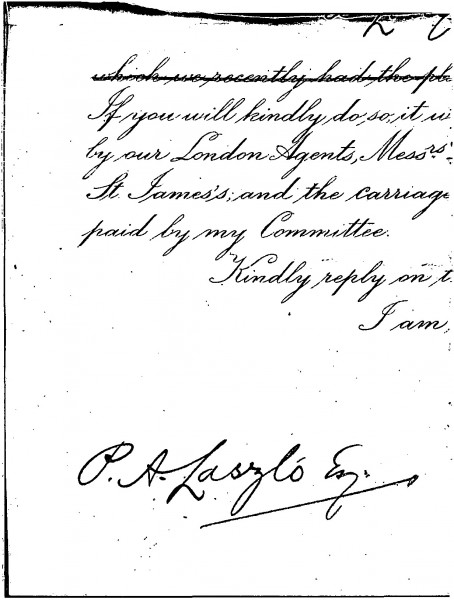 which we recently had the pl
If you will kindly do so, it w
by our London Agents, Messrs
St. James's; and the carriage
paid by my Committee.
Kindly reply on t
I am,
P. A. László Esq.